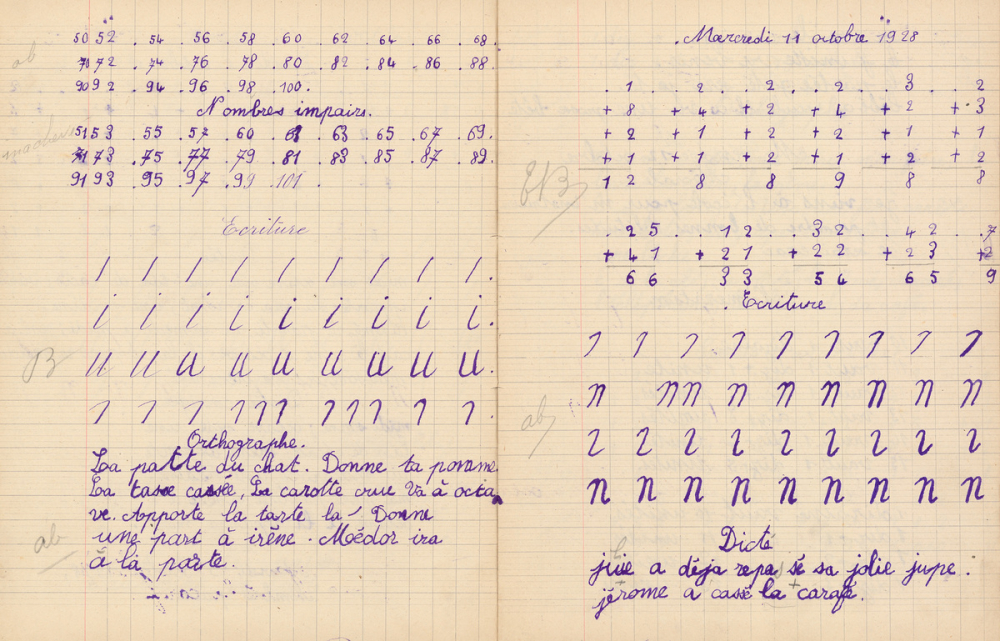 50 52 . 54 . 56 . 58 . 60 . 62 . 64 . 66 . 68.
70 72 . 74 . 76 . 78 . 80 . 82 . 84 . 86 . 88.
90 92 . 94 . 96 . 98 . 100.
Nombres impairs.
51 53 . 55 . 57 . 60 . 61 . 63 . 65 . 67 . 69.
71 73 . 75 . 77 . 79 . 81 . 83 . 85 . 87 . 89.
91 93 . 95 . 97 . 99 . 101 .
Ecriture
i i i i i i i i i.
B u u u u u u u u u.
Orthographe.
La patte du chat. Donne ta pomme.
La tasse cassée, La carotte crue Va à octa
ve. Apporte la tarte la / Donne
ab une part à irène. Médor ira
à la porte.
Mercredi 11 octobre 1928
. 1 . 2 . 2 . 2 . 3 . 2
+ 8 + 4 + 2 + 4 + 2 + 3
+ 2 + 1 + 2 + 2 + 1 + 1
+ 1 + 1 + 2 + 1 + 2 + 2
12 8 8 9 8 8
TB
. 25 . 12 . 32 . 42 . 7
+ 41 + 21 + 22 + 23 + 2
66 33 54 65 9
. Ecriture
ab n n n n n n n n n n
n n n n n n n n n
Dicté
julie a déja repa sé sa jolie jupe.
jérome a cassé la carafe.